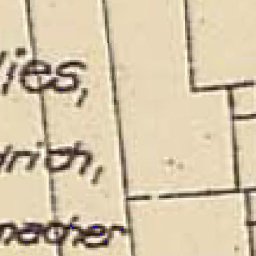 lies,
drich,
macher